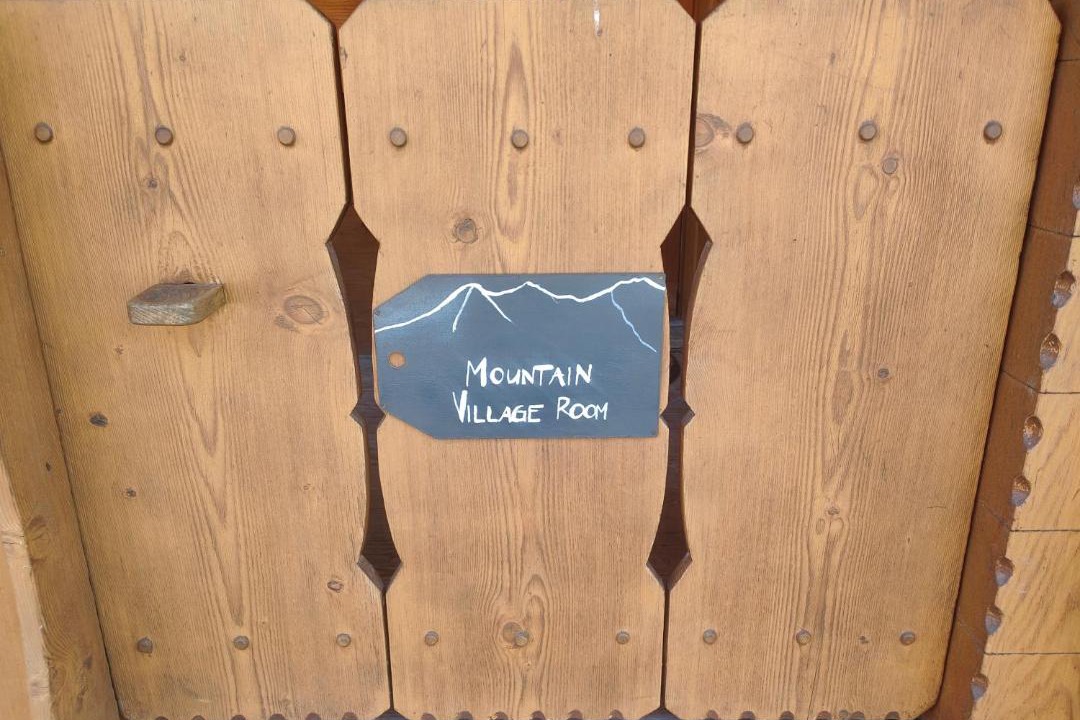 Mountain
Village Room